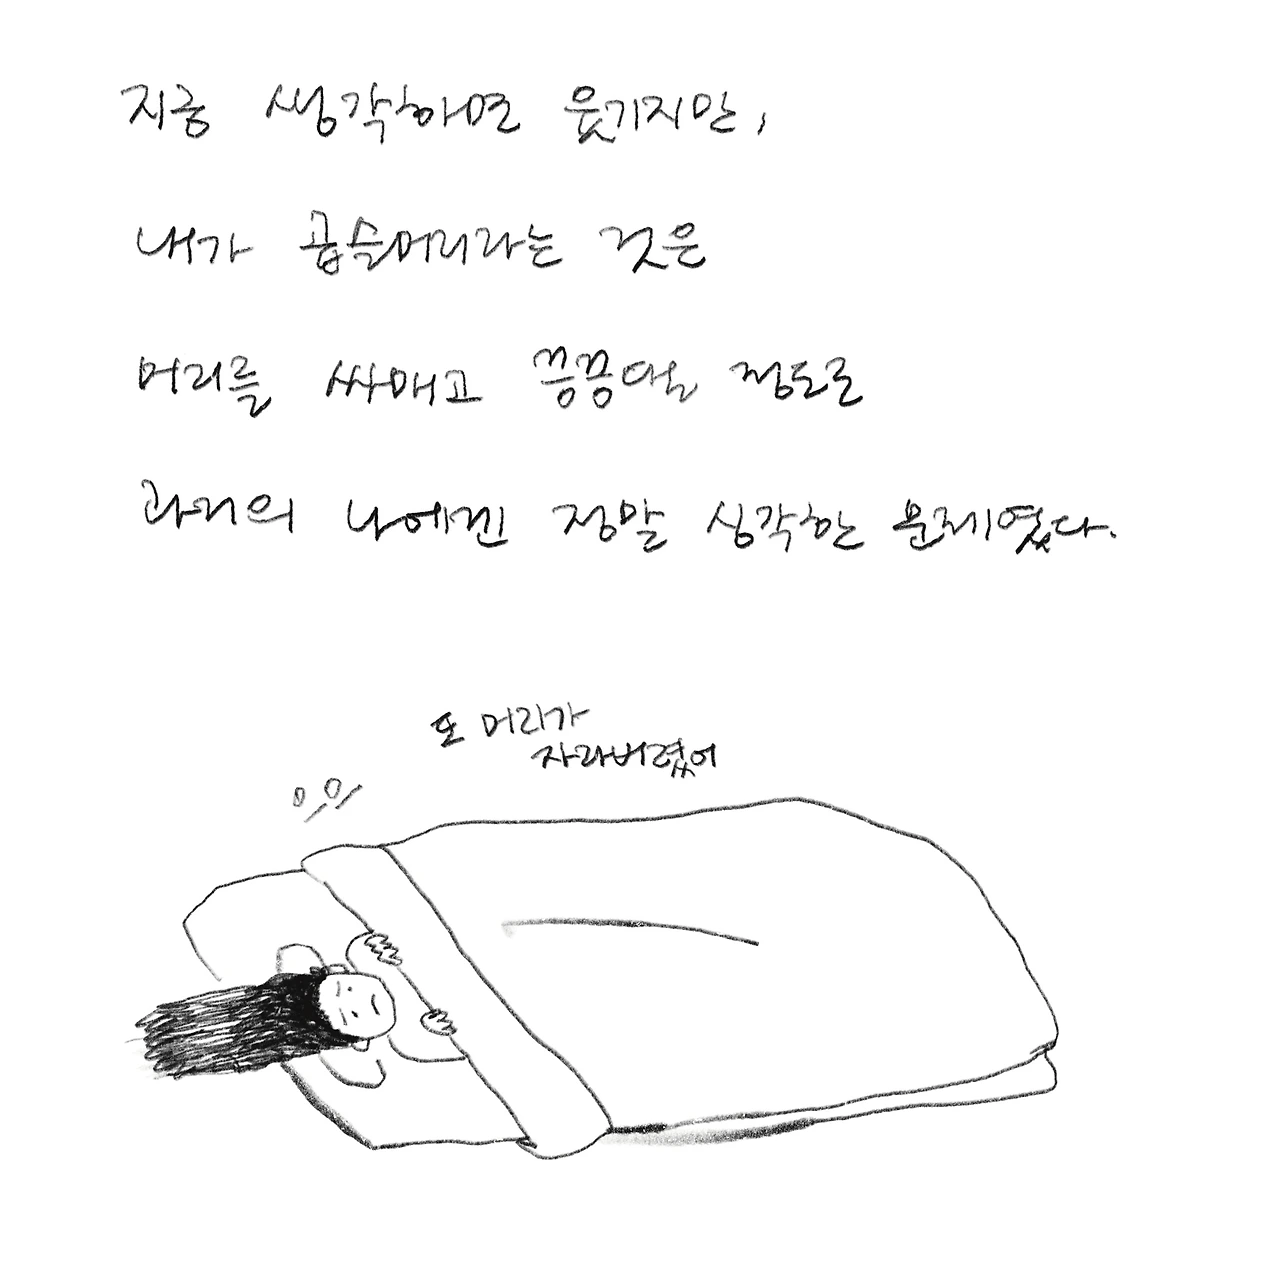 지금 생각하면 웃기지만,
내가 곱슬머리라는 것은
머리를 싸매고 끙끙댈 정도로
과거의 나에겐 정말 심각한 문제였다.
또 머리가
자라버렸어